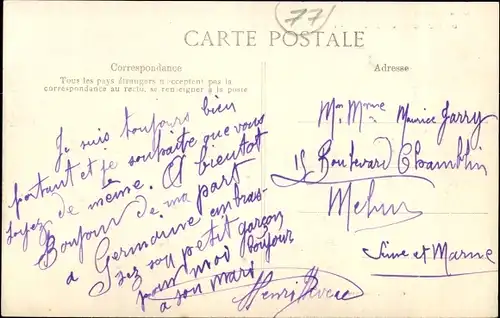 77
CARTE POSTALE
Correspondance
Tous les pays étrangers n'acceptent pas la
correspondance au recto, se renseigner à la poste
Adresse
Je suis toujours bien
portant et je souhaite que vous
soyez de même. A bientôt
Bonjour de ma part
a Germaine embras-
sez son petit garçon
pour moi bonjour
a son mari
Henri
Mme Maurice Jarry
15 Boulevard Chamblin
Melun
Seine et Marne